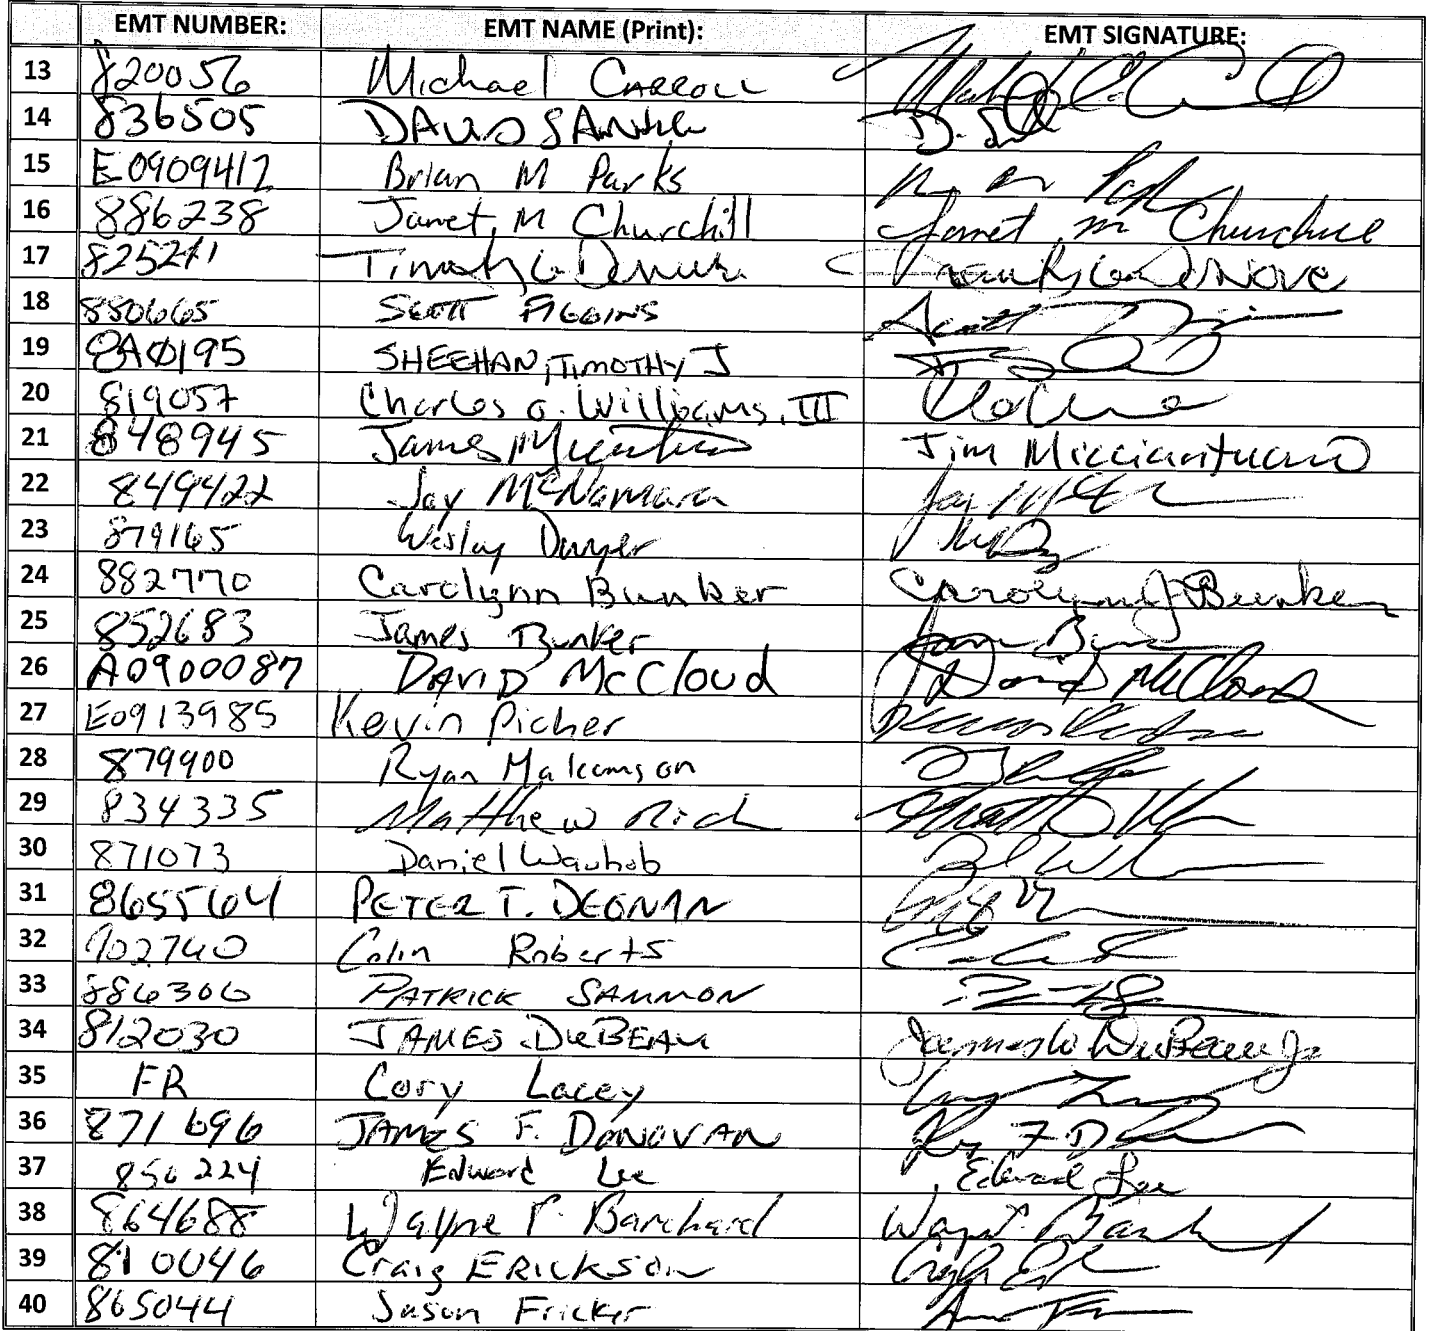 EMT NUMBER: EMT NAME (Print): EMT SIGNATURE:
13 820056 Michael CARROLL
14 836505 DAVID
15 E0909412 Brian M Parks
16 886238 Janet M Churchill Janet m Churchill
17 825271
18 880665 SCOTT FIGGINS Scott
19 8A0195 SHEEHAN, TIMOTHY J
20 819057 Charles O. Williams, III
21 848945 James Jim Micciantuono
22 849422 Jay McNamara Jay
23 879165 Wesley Dwyer
24 882770 Carolynn Bunker Carolynn J Bunker
25 852683 James Bunker
26 A0900087 DAVID McCloud David McCloud
27 E0913985 Kevin Picher
28 879900 Ryan Malcomson
29 834335 Matthew Rich
30 871073 Daniel Wauhob
31 865564 PETER T. DEGNAN
32 902740 Colin Roberts
33 886306 PATRICK SAMMON
34 812030 JAMES DUBEAU James W DuBeau Jr
35 FR Cory Lacey
36 871696 JAMES F. DONOVAN
37 850224 Edward Lee Edward Lee
38 864688 Wayne P. Barchard
39 810046 Craig ERICKSON
40 865044 Jason Fricker